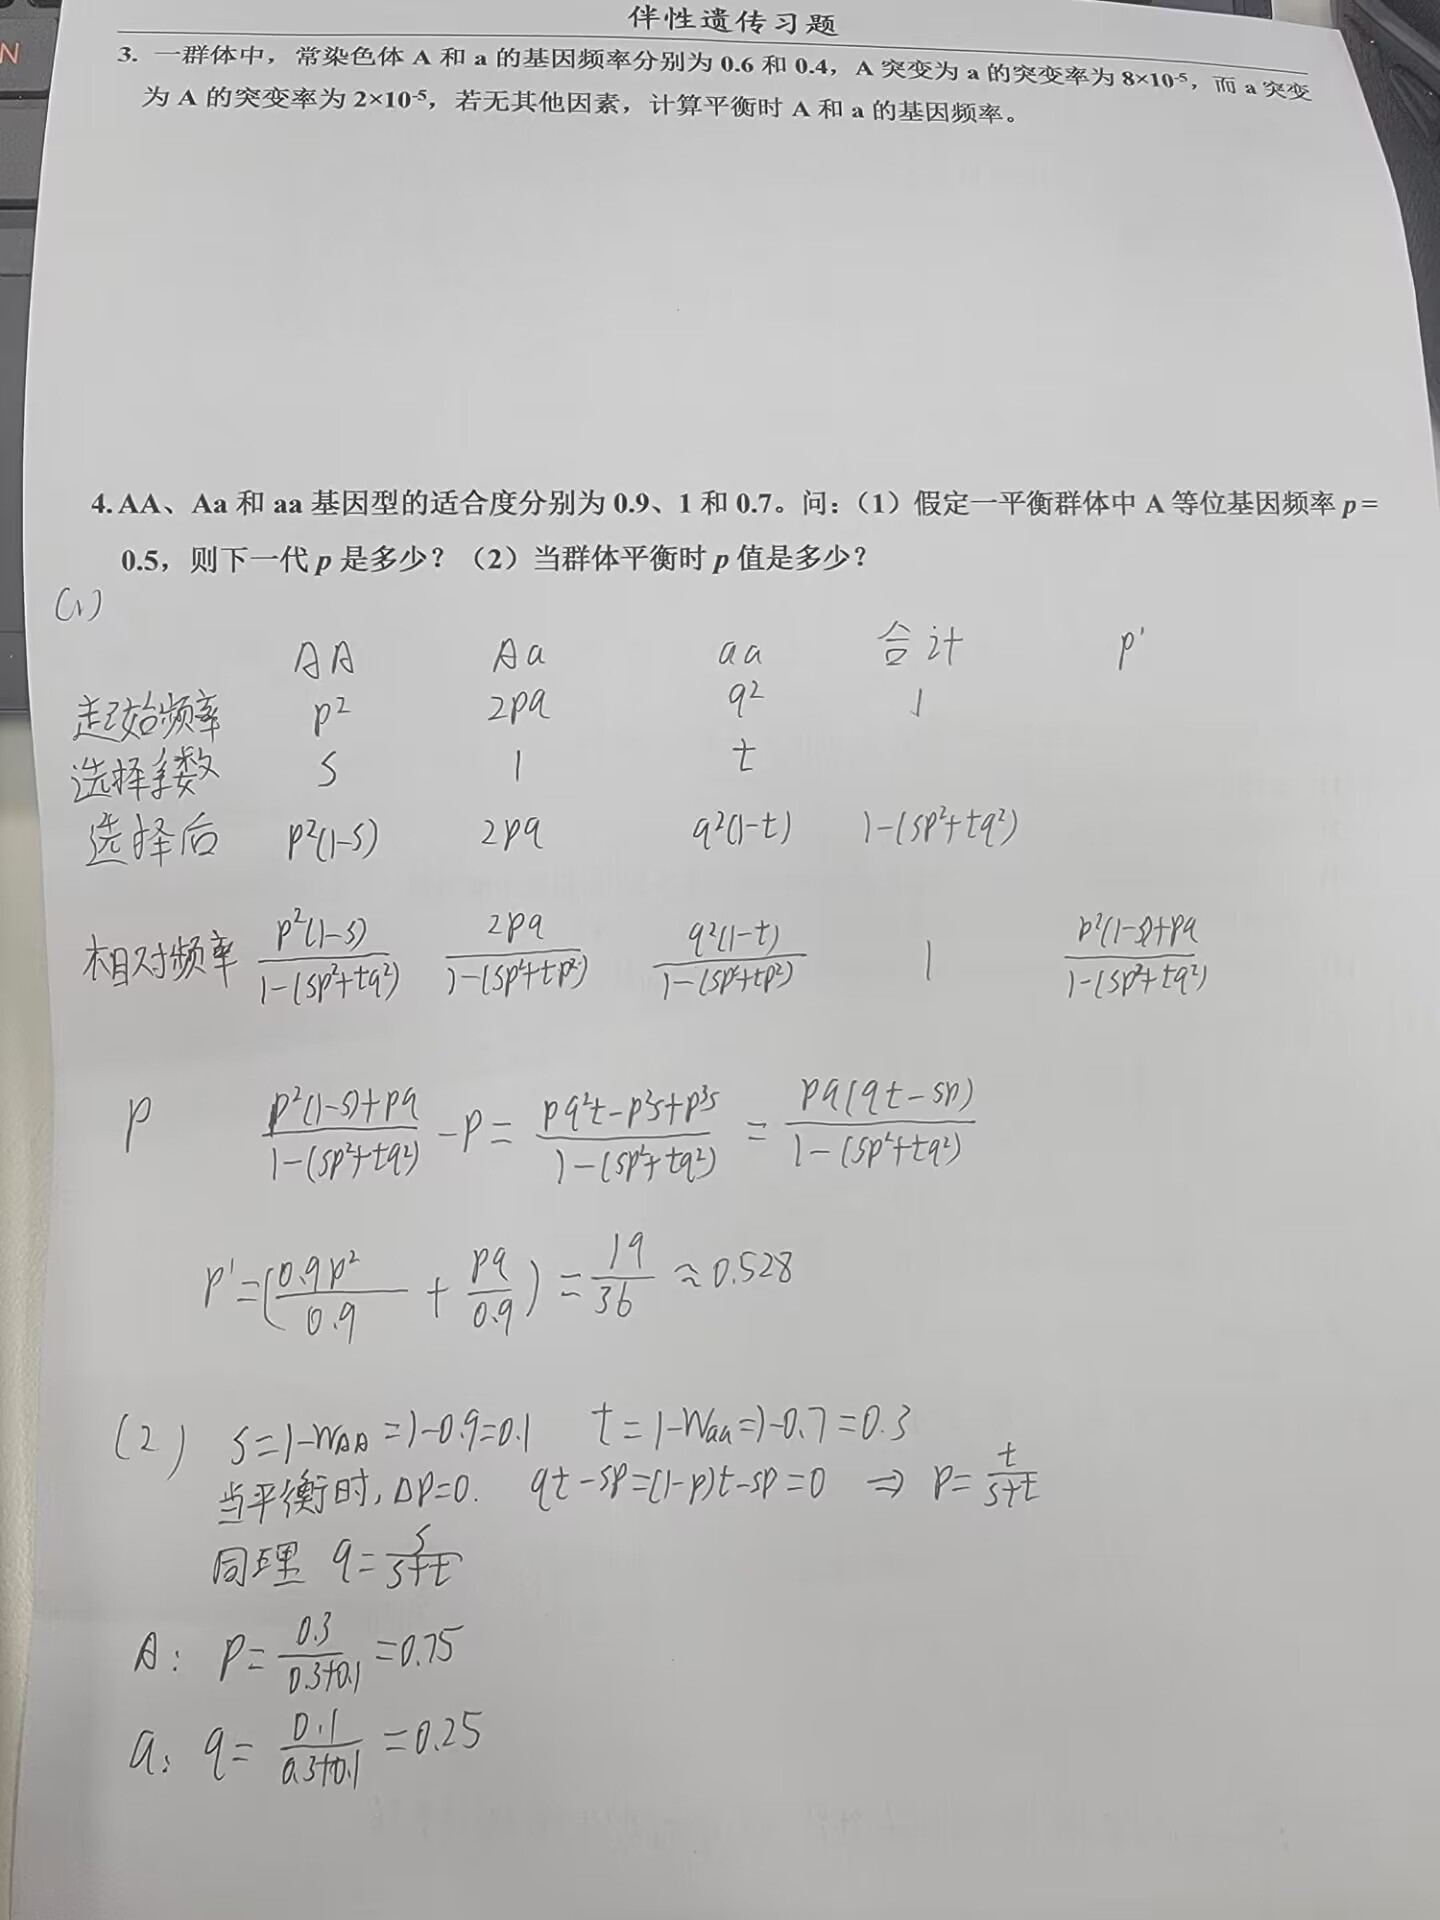 N
伴性遗传习题
3. 一群体中，常染色体 A 和 a 的基因频率分别为 0.6 和 0.4，A 突变为 a 的突变率为 8×10⁻⁵，而 a 突变
为 A 的突变率为 2×10⁻⁵，若无其他因素，计算平衡时 A 和 a 的基因频率。
4. AA、Aa 和 aa 基因型的适合度分别为 0.9、1 和 0.7。问：（1）假定一平衡群体中 A 等位基因频率 p =
0.5，则下一代 p 是多少？（2）当群体平衡时 p 值是多少？
(1)
AA Aa aa 合计 p'
起始频率 p² 2pq q² 1
选择系数 s 1 t
选择后 p²(1-s) 2pq q²(1-t) 1-(sp²+tq²)
相对频率 p²(1-s)/1-(sp²+tq²) 2pq/1-(sp²+tp²) q²(1-t)/1-(sp²+tp²) 1 p²(1-s)+pq/1-(sp²+tq²)
p p²(1-s)+pq/1-(sp²+tq²) -p= pq²t-p²s+p³s/1-(sp²+tq²) = pq(qt-sp)/1-(sp²+tq²)
p'=(0.9p²/0.9 + pq/0.9) = 19/36 ≈0.528
(2) s=1-WAA=1-0.9=0.1 t=1-Waa=1-0.7=0.3
当平衡时,Δp=0. qt-sp=(1-p)t-sp=0 ⇒ p= t/s+t
同理 q= s/s+t
A: p= 0.3/0.3+0.1 =0.75
a: q= 0.1/0.3+0.1 =0.25